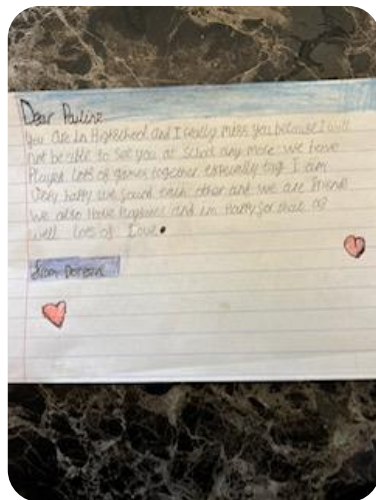 Dear Pauline
You are in Highschool and I really miss you because I will
not be able to see you at School any more we have
Played Lots of games together especially tag I am
Very happy we found each other and we are friends
we also Have and im Happy for that as
well Lots of Love
from